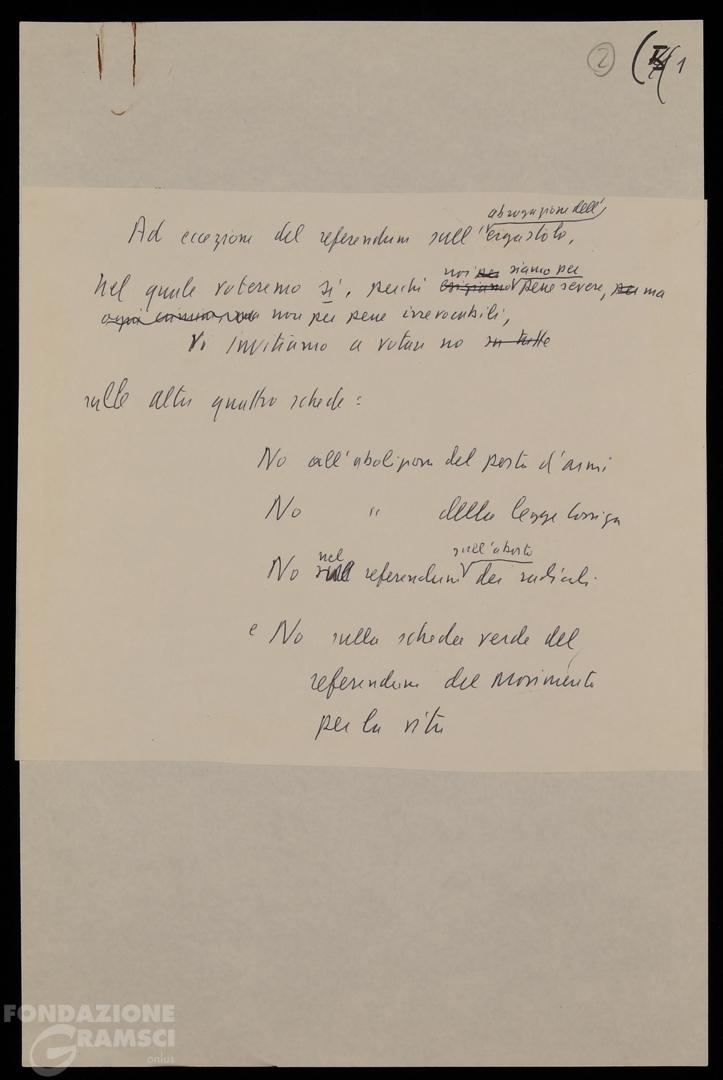 2 1
abrogazione dell'
Ad eccezione del referendum sull'ergastolo,
noi siamo per
nel quale voteremo sì, perché pene severe, ma
non per pene irrevocabili,
Vi invitiamo a votare no su tutte
sulle altre quattro schede:
No all'abolizione del porto d'armi
No " della legge Cossiga
nel sull'aborto
No referendum dei radicali
e No sulla scheda verde del
referendum del Movimento
per la vita
FONDAZIONE
GRAMSCI
onlus